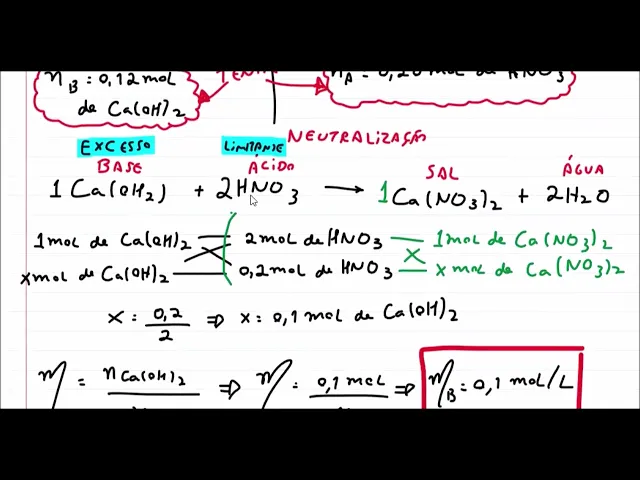 n_B = 0,12 mol
de Ca(OH)2
n_A = 0,20 mol de HNO3
NEUTRALIZAÇÃO
EXCESSO LIMITANTE
BASE ÁCIDO SAL ÁGUA
1 Ca(OH2) + 2HNO3 → 1Ca(NO3)2 + 2H2O
1mol de Ca(OH)2 = 2 mol de HNO3 — 1mol de Ca(NO3)2
x mol de Ca(OH)2 — 0,2 mol de HNO3 — x mol de Ca(NO3)2
x = 0,2/2 ⇒ x = 0,1 mol de Ca(OH)2
M = nCa(OH)2 ⇒ M = 0,1 mol ⇒ M_B = 0,1 mol/L